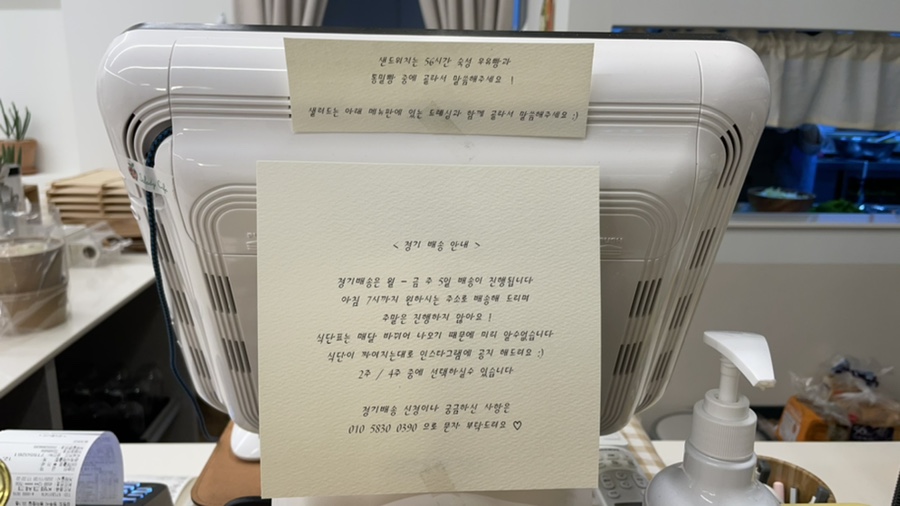 샌드위치는 56시간 숙성 우유빵과
통밀빵 중에 골라서 말씀해주세요 !
샐러드는 아래 메뉴판에 있는 드레싱과 함께 골라서 말씀해주세요 :)
< 정기 배송 안내 >
정기배송은 월 - 금 주 5일 배송이 진행됩니다
아침 7시까지 원하시는 주소로 배송해 드리며
주말은 진행하지 않아요 !
식단표는 매달 바뀌어 나오기 때문에 미리 알수없습니다
식단이 짜여지는대로 인스타그램에 공지 해드려요 :)
2주 / 4주 중에 선택하실수 있습니다
정기배송 신청이나 궁금하신 사항은
010 5830 0390 으로 문자 부탁드려요 ♡